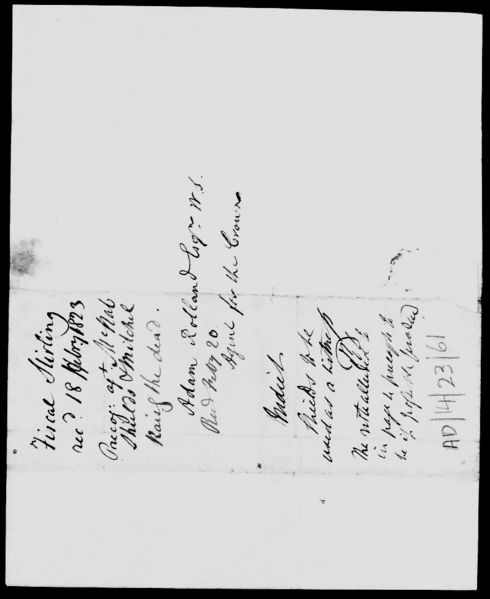 Fiscal Stirling
rec.d 18 Febry 1823
Precog: agt McNab
Shields & Mitchel
Raisg the dead.
Adam Rolland Esqr. W.S.
Red Febry 20
Agent for the Crown
Indict
Shields to be
used as a witness
The note alluded to
in page
be
AD/14/23/61